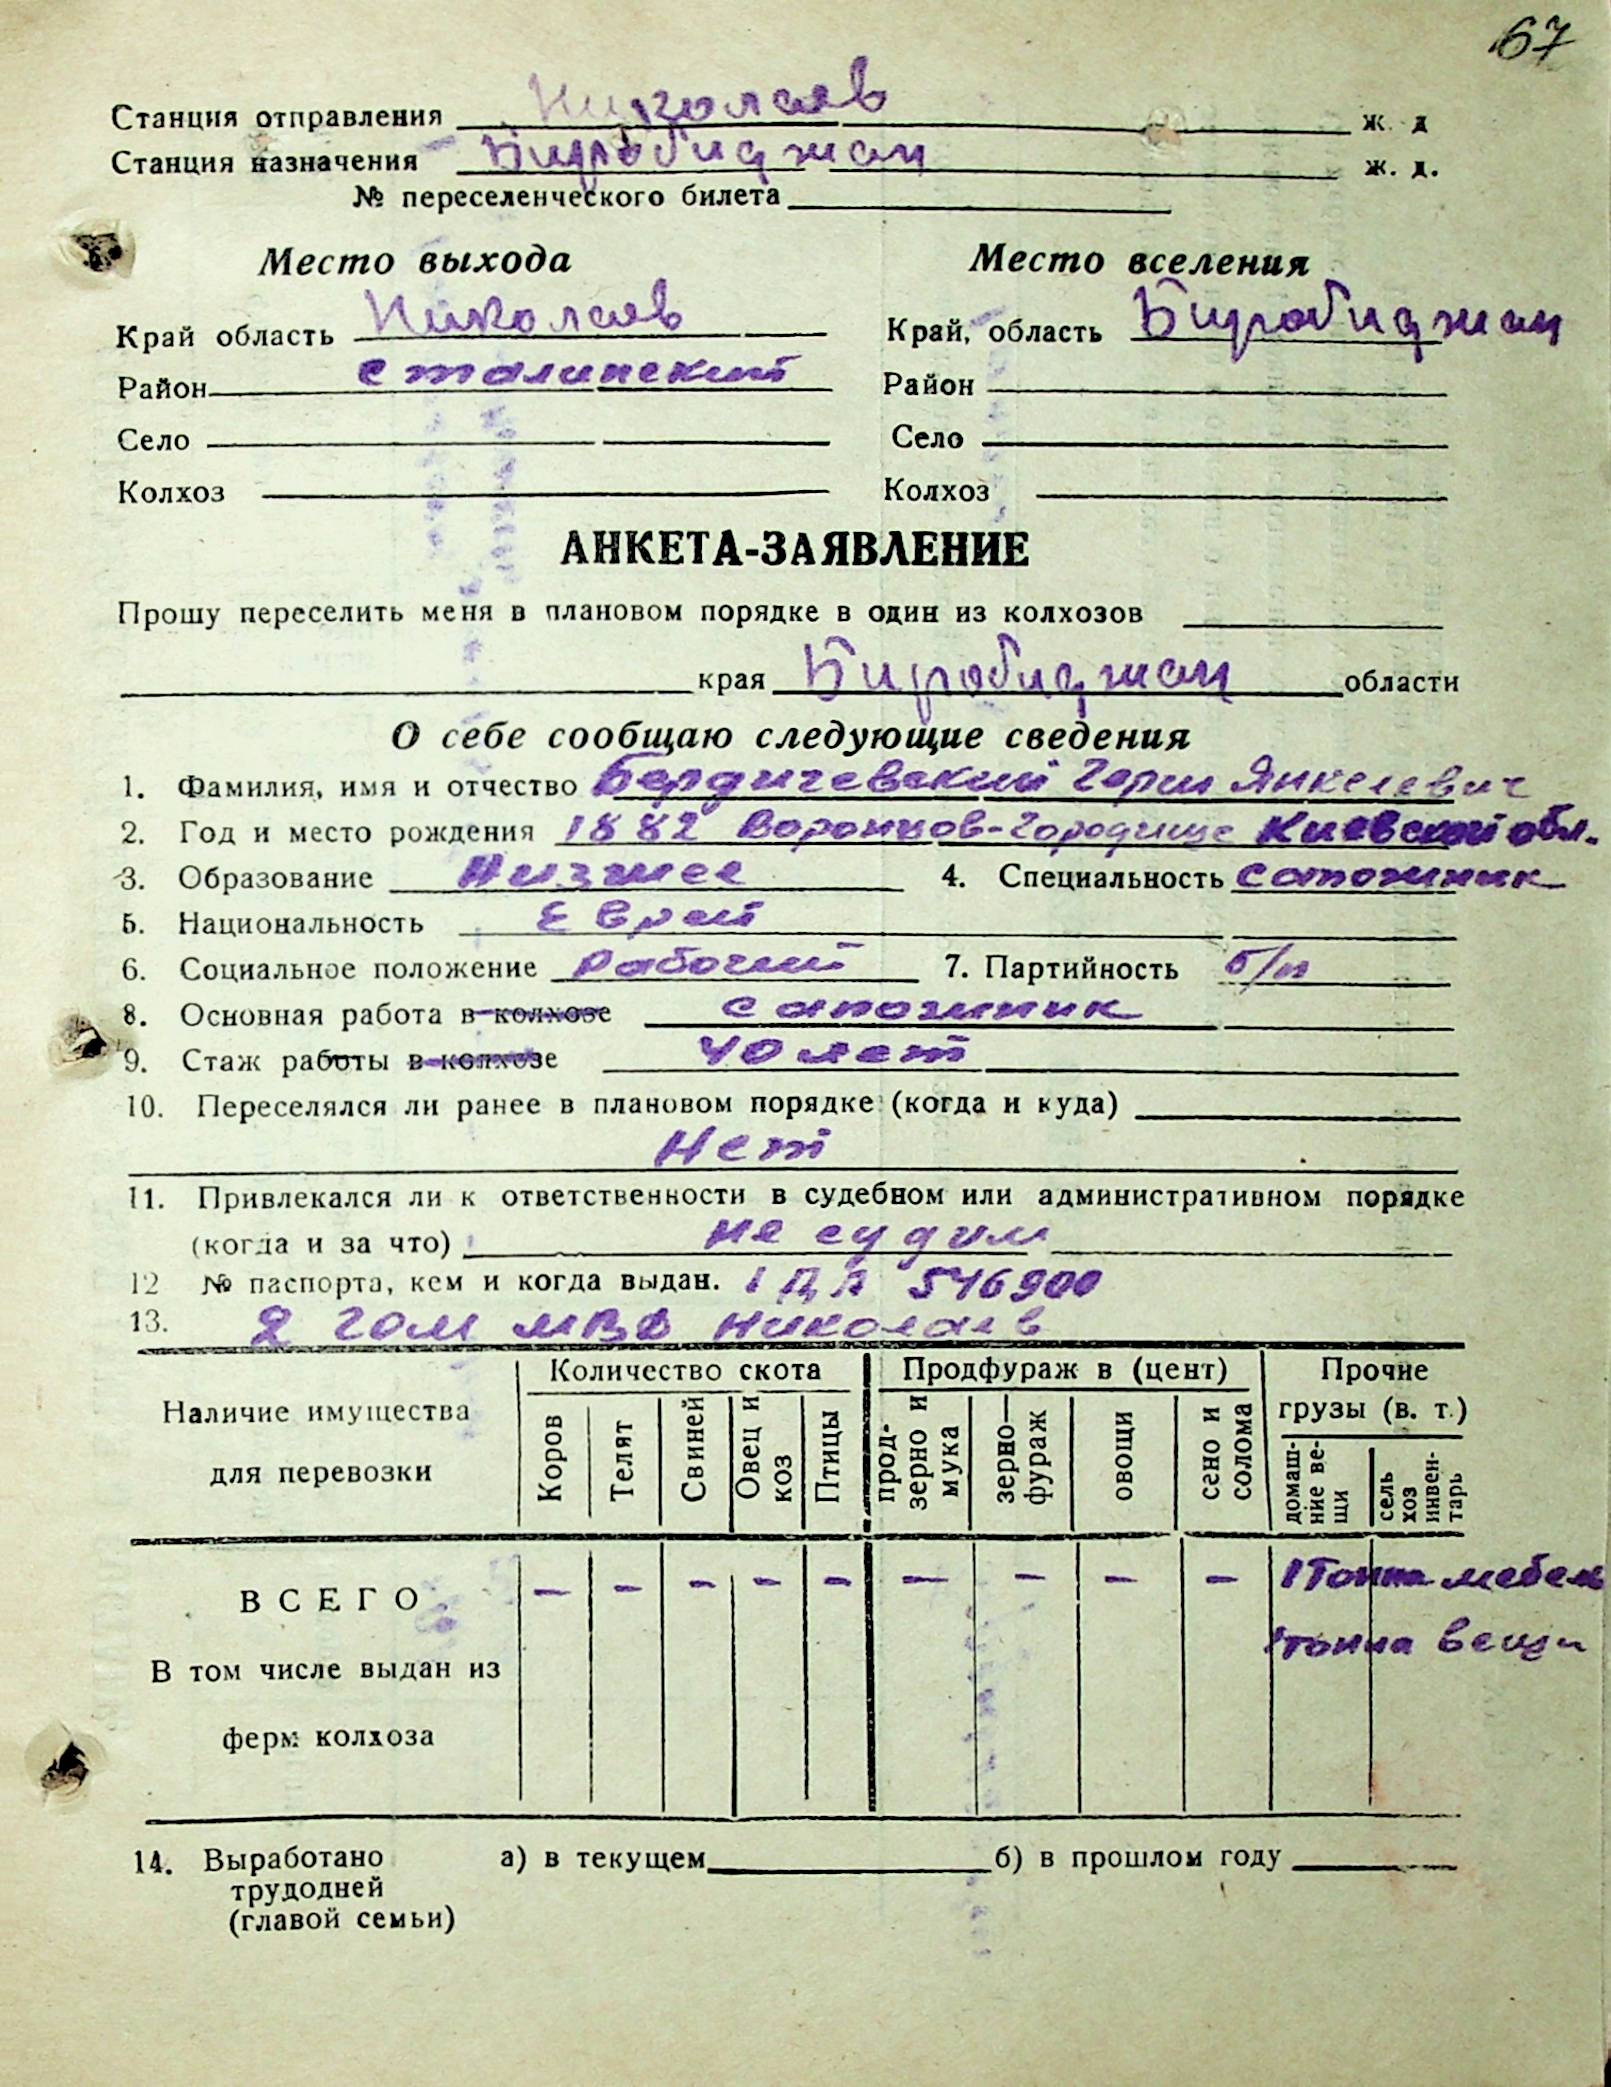 67
Станция отправления Николаев ж. д
Станция назначения Биробиджан ж. д.
№ переселенческого билета
Место выхода Место вселения
Край область Николаев Край, область Биробиджан
Район Сталинский Район
Село Село
Колхоз Колхоз
АНКЕТА-ЗАЯВЛЕНИЕ
Прошу переселить меня в плановом порядке в один из колхозов
края Биробиджан области
О себе сообщаю следующие сведения
1. Фамилия, имя и отчество Бердичевский Герш Янкелевич
2. Год и место рождения 1882 Воронцов-Городище Киевской обл.
3. Образование Низшее 4. Специальность сапожник
5. Национальность Еврей
6. Социальное положение Рабочий 7. Партийность б/п
8. Основная работа в колхозе сапожник
9. Стаж работы в колхозе 40 лет
10. Переселялся ли ранее в плановом порядке (когда и куда)
Нет
11. Привлекался ли к ответственности в судебном или административном порядке
(когда и за что) не судим
12 № паспорта, кем и когда выдан. 546900
13. 2 ГОМ МВД Николаев
Наличие имущества для перевозки
Количество скота Продфураж в (цент) Прочие грузы (в. т.)
Коров Телят Свиней Овец и коз Птицы прод-зерно и мука зерно—фураж овощи сено и солома домаш-ние ве-щи сель хоз инвен-тарь
ВСЕГО – – – – – – – – – 1 Тонна мебель
1 тонна вещи
В том числе выдан из
ферм колхоза
14. Выработано а) в текущем б) в прошлом году
трудодней
(главой семьи)